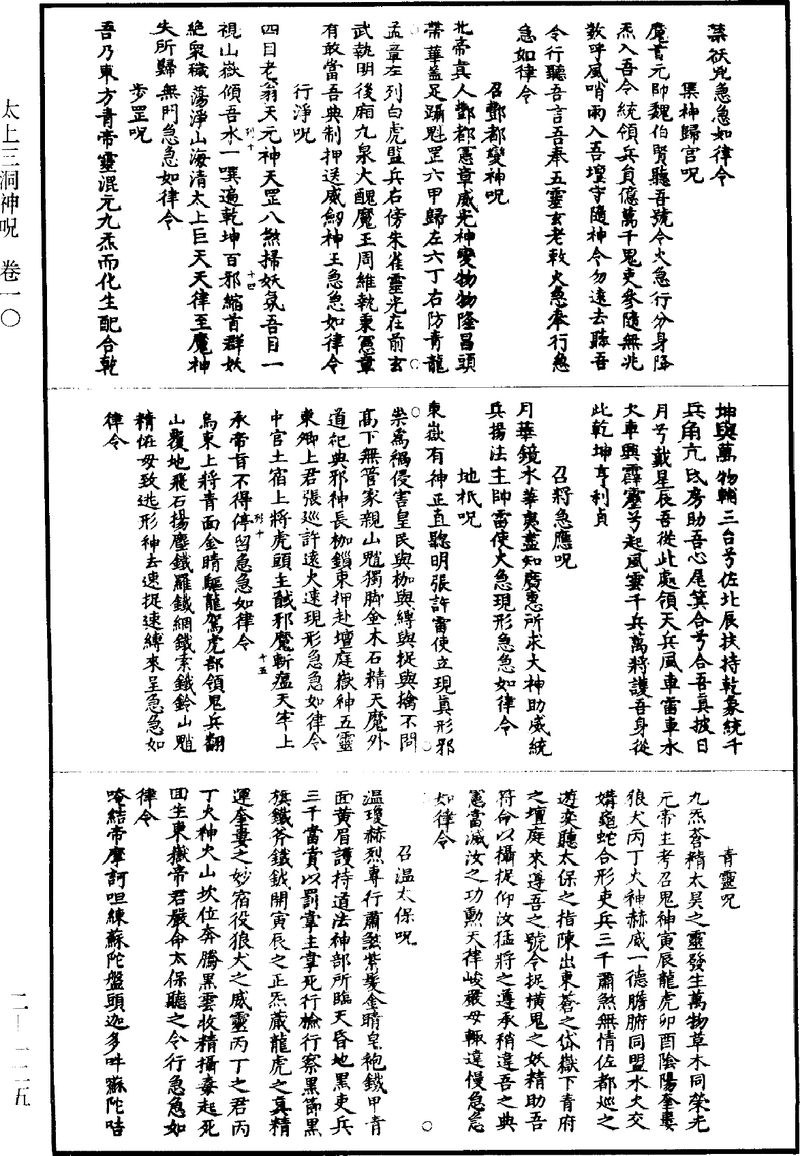 太上三洞神呪　卷一〇
二—一二五
禁妖兇急急如律令
集神歸宮呪
魔首元帥魏伯賢聽吾號令火急行分身降
炁入吾令統領兵負億萬千鬼吏參隨無兆
數呼風哨雨入吾壇守隨神令勿遠去聽吾
令行聽吾言吾奉五靈玄老敕火急奉行急
急如律令
召酆都變神呪
北帝真人酆都憲章威光神變物物隆昌頭
帶華蓋足躡魁罡六甲歸左六丁右防青龍
孟章左列白虎監兵右傍朱雀靈光在前玄
武執明後廂九泉大醜魔王周維執秉憲章
有敢當吾典制押送威劒神王急急如律令
行淨呪
四目老翁天元神天罡八煞掃妖氛吾目一
視山嶽傾吾水一噀遍乾坤百邪縮首群妖
絶衆穢蕩淨山海清太上巨天天律至魔神
失所歸無門急急如律令
步罡呪
吾乃東方青帝靈混元九炁而化生配合乾
坤與萬物輔三台兮佐北辰扶持乾象統千
兵角亢氐房助吾心尾箕合兮合吾真披日
月兮戴星辰吾從此處領天兵風車雷車水
火車興霹靂兮起風雲千兵萬將護吾身從
此乾坤亨利貞
召將急應呪
月華鏡水華夷盡知廣惠所求大神助威統
兵揚法主帥雷使火急現形急急如律令
地祇呪
東嶽有神正直聰明張許雷使立現真形邪
祟爲禍侵害皇民與枷與縛與捉與擒不問
高下無管家親山魈獨脚金木石精天魔外
道祀典邪神長枷鎖束押赴壇庭嶽神五靈
東卿上君張巡許遠火速現形急急如律令
中官土宿上將虎頭主馘邪魔斬瘟天牢上
承帝旨不得停留急急如律令
烏東上將青面金睛驅龍駕虎部領鬼兵翻
山覆地飛石揚塵鐵羅鐵網鐵索鐵鈴山魈
精怪毋致逃形神去速捉速縛來呈急急如
律令
青靈呪
九炁蒼精太昊之靈發生萬物草木同榮光
元帝主考召鬼神寅辰龍虎卯酉陰陽奎婁
狼火丙丁火神赫威一德膽腑同盟水火交
媾龜蛇合形吏兵三千肅煞無情佐都巡之
遊奕聽太保之指陳出東蒼之岱嶽下青府
之壇庭來遵吾之號令捉橫鬼之妖精助吾
符命以攝捉仰汝猛將之遵承稍違吾之典
憲當滅汝之功勲天律峻嚴毋輒違慢急急
如律令
召温太保呪
温瓊赫烈專行肅煞紫髮金睛皂袍鐵甲青
面黄眉護持道法神部所臨天昏地黑吏兵
三千當賁以罰掌主掌死行檢行察黑節黑
旗鐵斧鐵鉞開寅辰之正炁藏龍虎之真精
運奎婁之妙宿役狼火之威靈丙丁之君丙
丁火神火山坎位奔騰黑雲收精攝毒起死
回生東嶽帝君嚴命太保聽之令行急急如
律令
唵結帝摩訶呾練蘇陀盤頭迦多吽囌陀咭